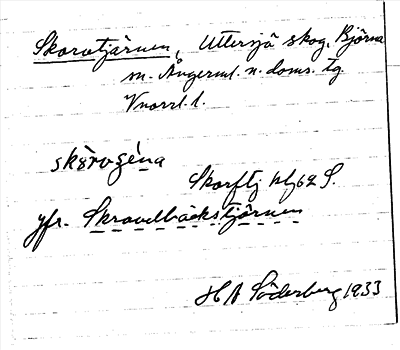 Skorvtjärnen, Uttersjö skog, Björna
sn. Ångerml. n. doms. tg
Vnorrl. l.
skǫ̀rvɔʒéna
Skorftj
jfr. Skravelbäckstjärnen
H A Söderberg 1933